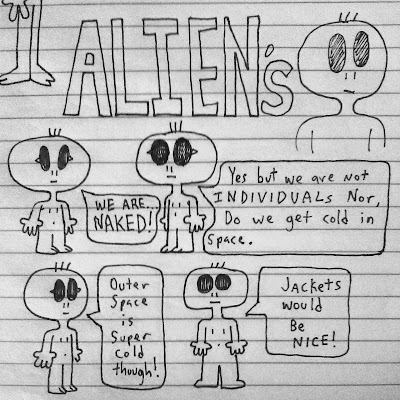 ALIEN's
WE ARE..
NAKED!
Yes but we are not
INDIVIDUALs Nor,
Do we get cold in
Space.
Outer
Space
is
Super
cold
though!
Jackets
would
Be
NICE!